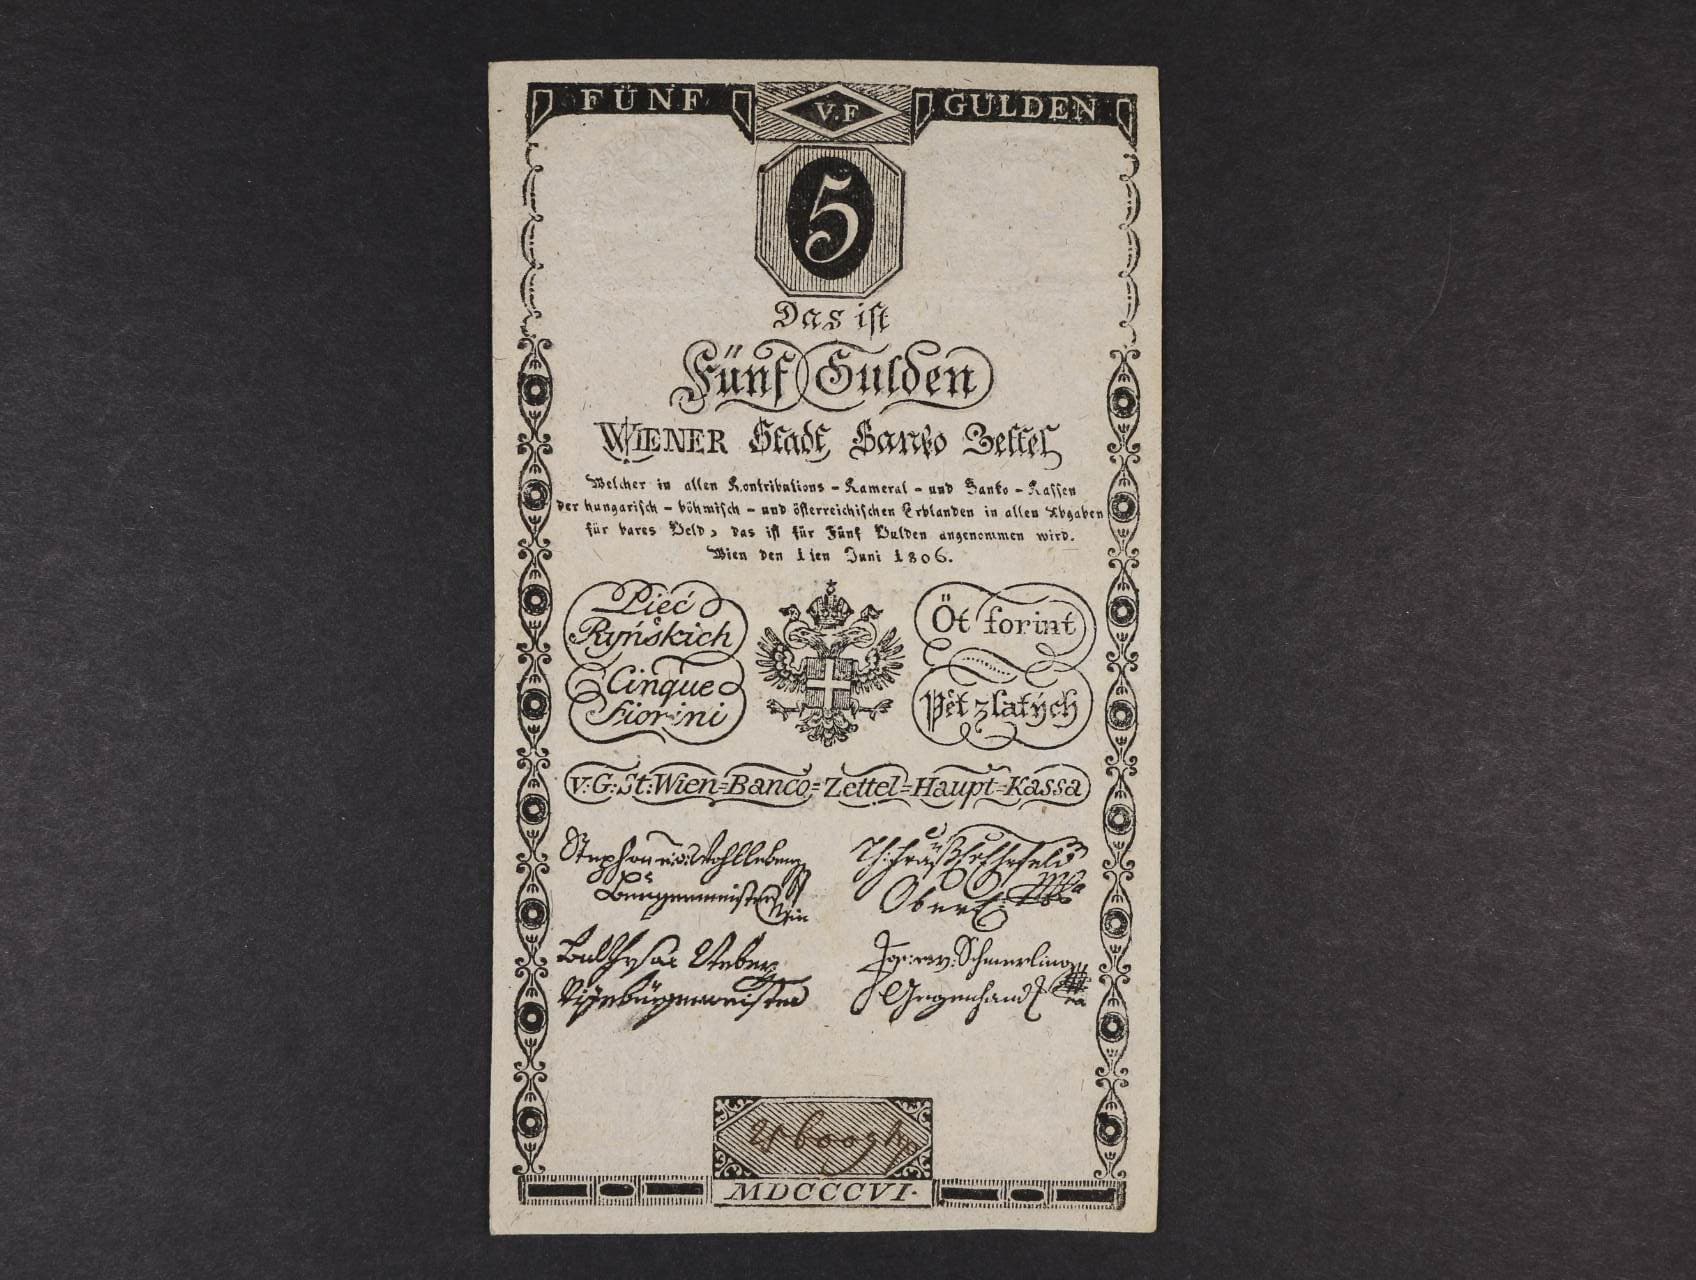 FÜNF V.F GULDEN
5
Das ist
Fünf Gulden
WIENER Stadt Banko Zettel
Welcher in allen Kontributions - Kameral - und Banko - Kassen
der hungarisch - böhmisch - und österreichischen Erblanden in allen Abgaben
für bares Geld, das ist für Fünf Gulden angenommen wird.
Wien den 1ten Juni 1806.
Pięć
Ryńskich
Cinque
Fiorini
Öt forint
Pět zlatých
V:G:St:Wien=Banco=Zettel=Haupt=Kassa
Stephan
Burgermeister
Weber
Vizeburgermeister
Ober
Schmerling
Gegenhand
MDCCCVI.